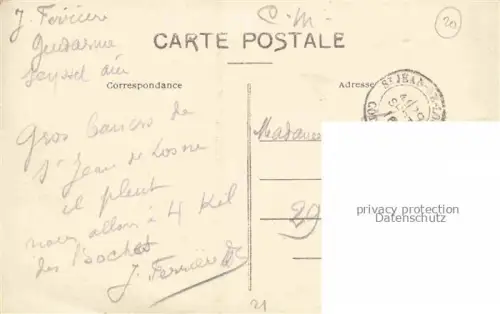 J. Ferriere
Gendarme
Seyssel ain
C. M.
20
CARTE POSTALE
Correspondance
Adresse
St JEAN-DE-L
Gros baisers de
St Jean de Losne
il pleut
nous allons à 4 Kil
des Boches
J. Ferriere
Madame
29
privacy protection
Datenschutz
21